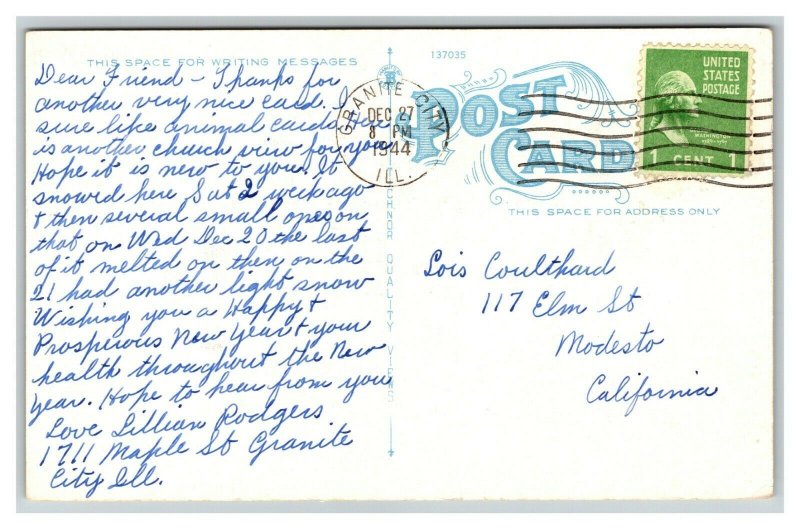 THIS SPACE FOR WRITING MESSAGES
Dear Friend - Thanks for
another very nice card. I
sure like animal cards Here
is another church view for you
Hope it is new to you. It
snowed here Sat 2 weeks ago
& then several small ones on
that on Wed Dec 20 the last
of it melted on then on the
21 had another light snow
Wishing you a Happy &
Prosperous New Year & your
health throughout the New
Year. Hope to hear from you
Love Lillian Rodgers
1711 Maple St Granite
City Ill.
137035
POST
CARD
GRANITE CITY
DEC 27
8 PM
1944
ILL.
UNITED
STATES
POSTAGE
WASHINGTON
1 CENT 1
THIS SPACE FOR ADDRESS ONLY
QUALITY VIEWS
Lois Coulthard
117 Elm St
Modesto
California